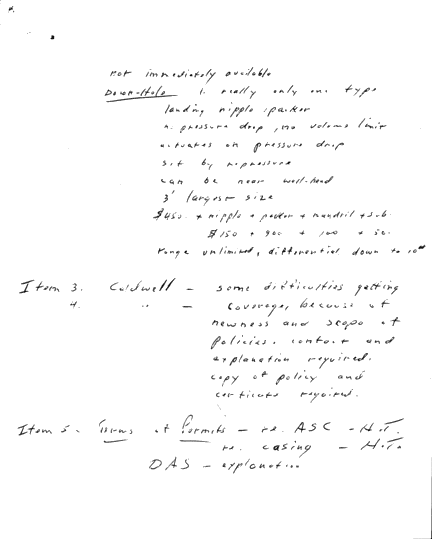 not immediately available
Down-Hole 1. really only one type
landing nipple, packer
n. pressure drop, no volume limit
actuates on pressure drop
set by repressure
can be near well-head
3" largest size
$450. + nipple + packer + mandril + sub.
$150 + 900 + 100 + 50.
range unlimited, differential down to 10
Item 3. Caldwell - some difficulties getting
4. " - Coverage, because of
newness and scope of
policies. contact and
explanation required.
copy of policy and
certificate required.
Item 5. Terms of Permits - re. ASC - H.T.
re. casing - H.T.
DAS - explanation